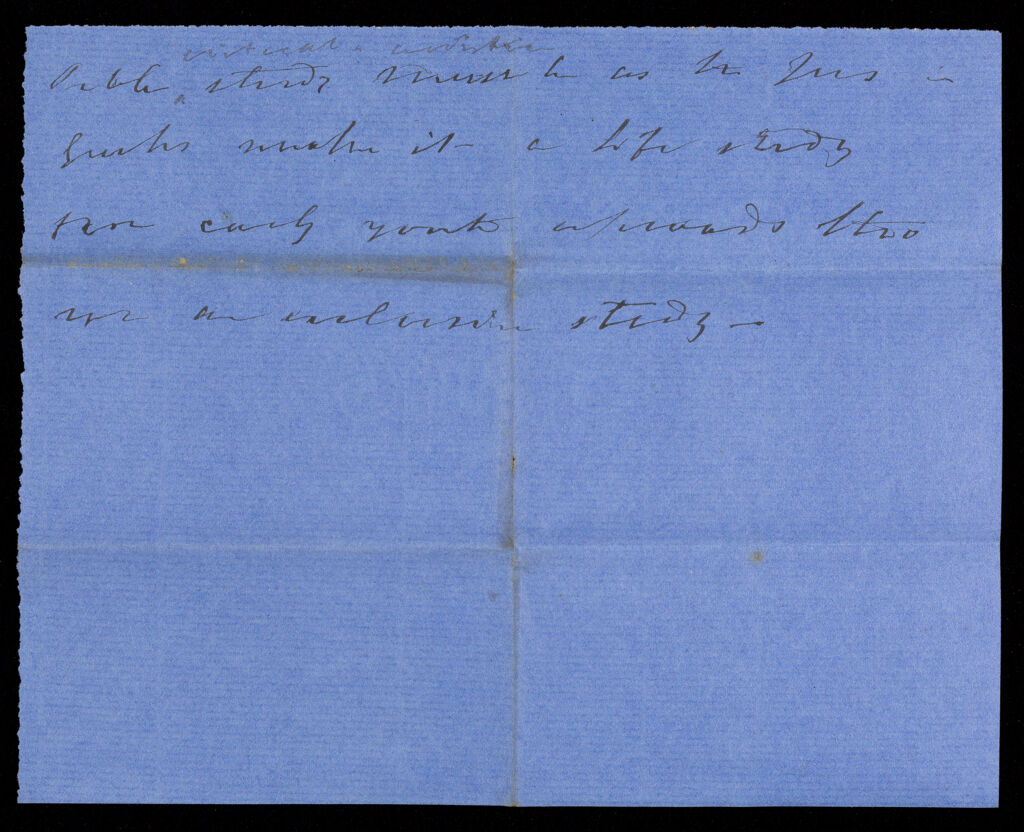 critical &
Bible study must be as the Jews in
make it a life study
from early youth upwards tho
not an exclusive study —